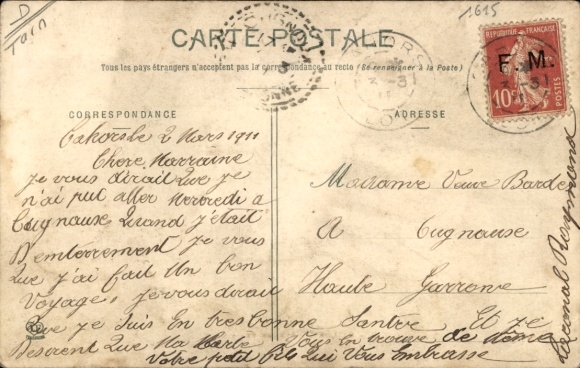 D
Tarn
1615
CARTE POSTALE
Tous les pays étrangers n'acceptent pas la correspondance au recto (Se renseigner à la Poste)
RÉPUBLIQUE FRANÇAISE
F. M.
10c
POSTES
CORRESPONDANCE
ADRESSE
Cahors le 2 Mars 1911
Chere Marraine
Je vous dirait que je
n'ai put aller Mercredi a
Cugnause quand j'était
D'enterrement Je vous
que j'ai fait un bon
Voyage, Je vous dirait
que je suis en tres bonne Santée Et je
Desirent que Ma carte vous en trouve de même
Votre petit fils qui vous embrasse
Madame Veuve Barde
A Cugnause
Haute Garrone
Raymond